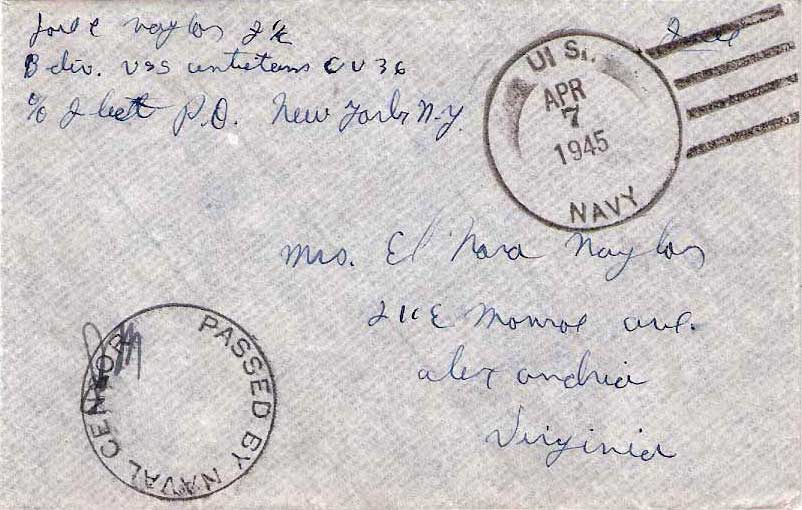 Naylor F 1/c
B div. USS antietam CV 36
c/o Fleet P.O. New York N.Y.
Free
U. S.
APR
7
1945
NAVY
Mrs. El Nora Naylor
211 E Monroe ave.
alexandria
Virginia
PASSED BY NAVAL CENSOR